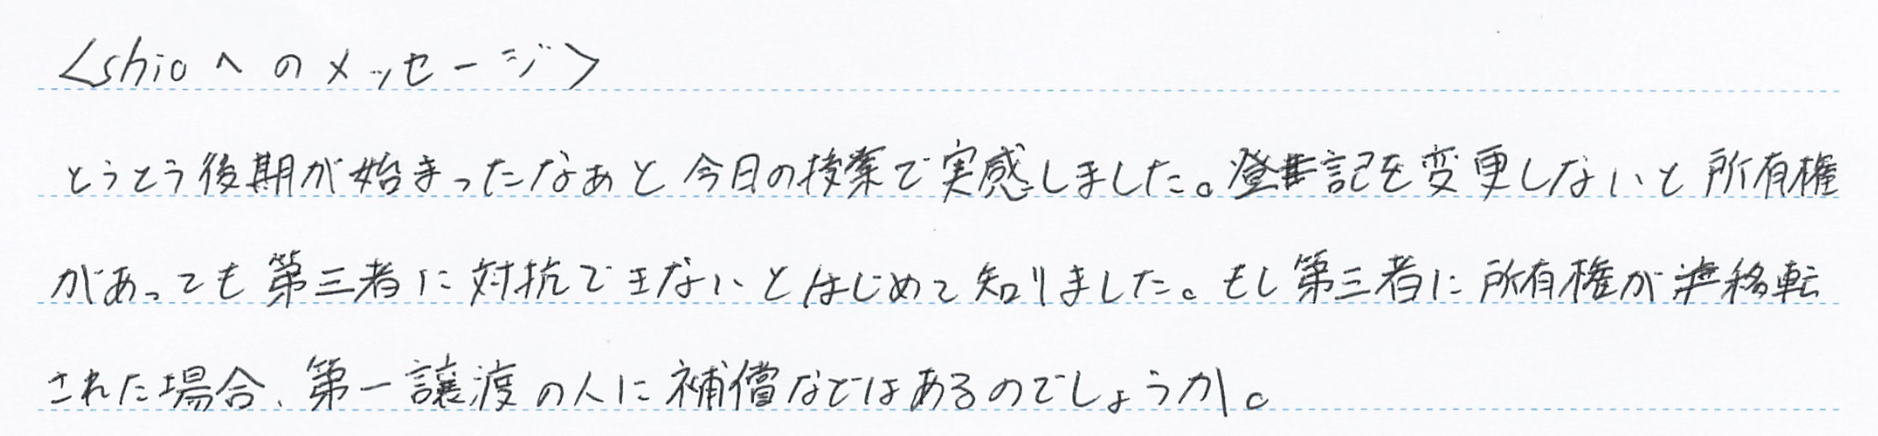 <shioへのメッセージ>
とうとう後期が始まったなぁと今日の授業で実感しました。登記を変更しないと所有権
があっても第三者に対抗できないとはじめて知りました。もし第三者に所有権が移転
された場合、第一譲渡の人に補償などはあるのでしょうか。